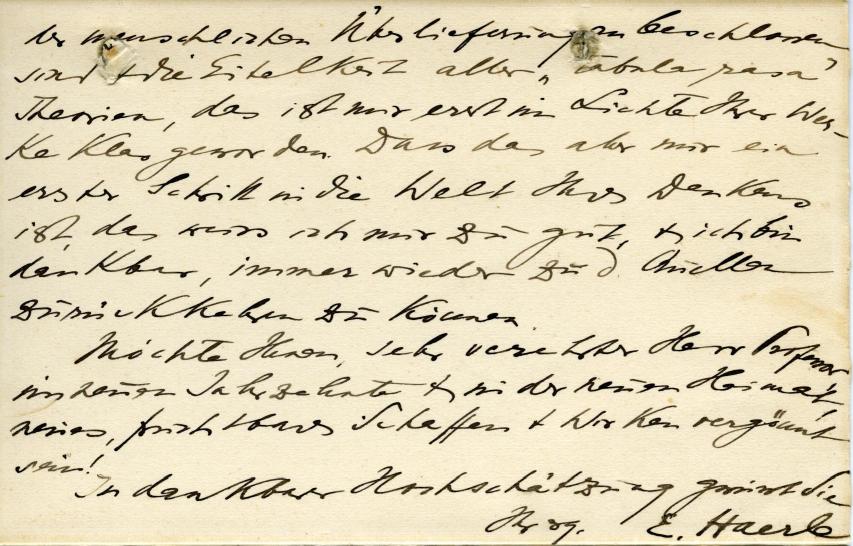 der menschlichen Überlieferung zu beschlossen
sind & die Eitelkeit aller „tabula rasa"
Theorien, das ist mir erst im Lichte Ihrer Wer-
ke klar geworden. Dass das aber nur ein
erster Schritt in die Welt Ihres Denkens
ist, das weiss ich nur zu gut, & ich bin
dankbar, immer wieder zu d. Quellen
zurückkehren zu können.
Möchte Ihnen, sehr verehrter Herr Professor
im neuen Jahrzehnte & in der neuen Heimat,
neues, fruchtbares Schaffen & Wirken vergönnt
sein!
In dankbarer Hochschätzung grüsst Sie
Ihr erg. E. Haerle